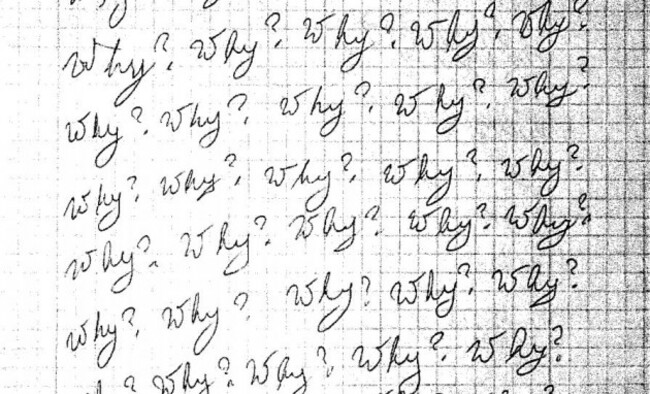 Why? Why? Why? Why? Why?
Why? Why? Why? Why? Why?
Why? Why? Why? Why? Why?
Why? Why? Why? Why? Why?
Why? Why? Why? Why? Why?
Why? Why? Why? Why?